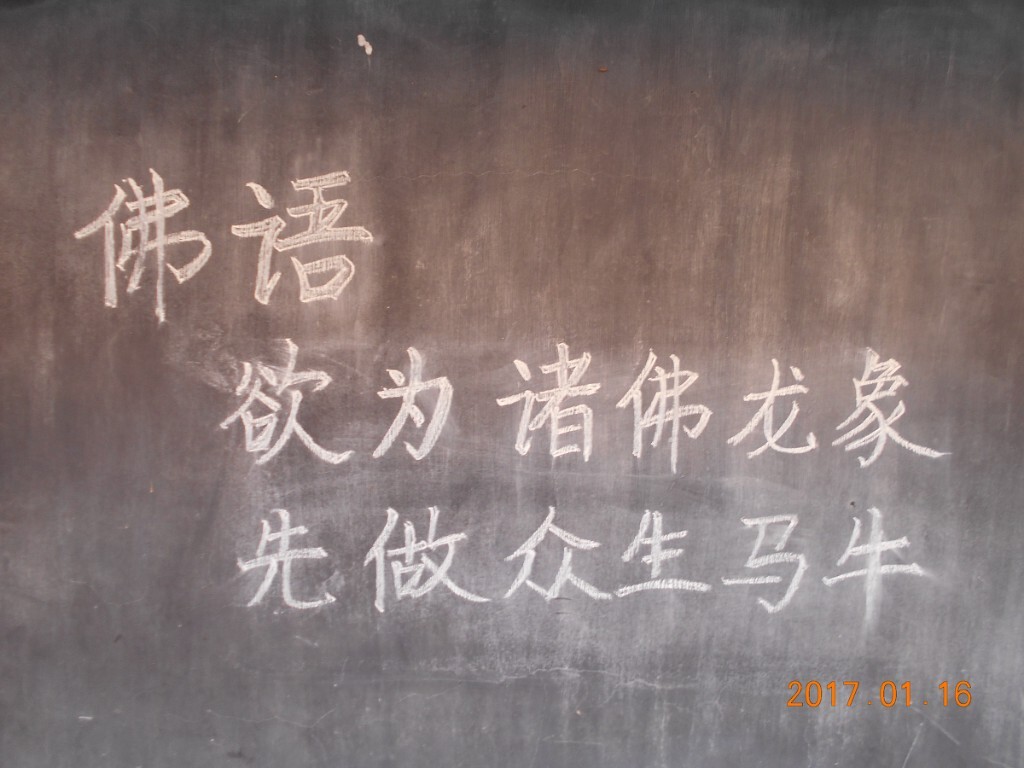 佛语
欲为诸佛龙象
先做众生马牛
2017.01.16